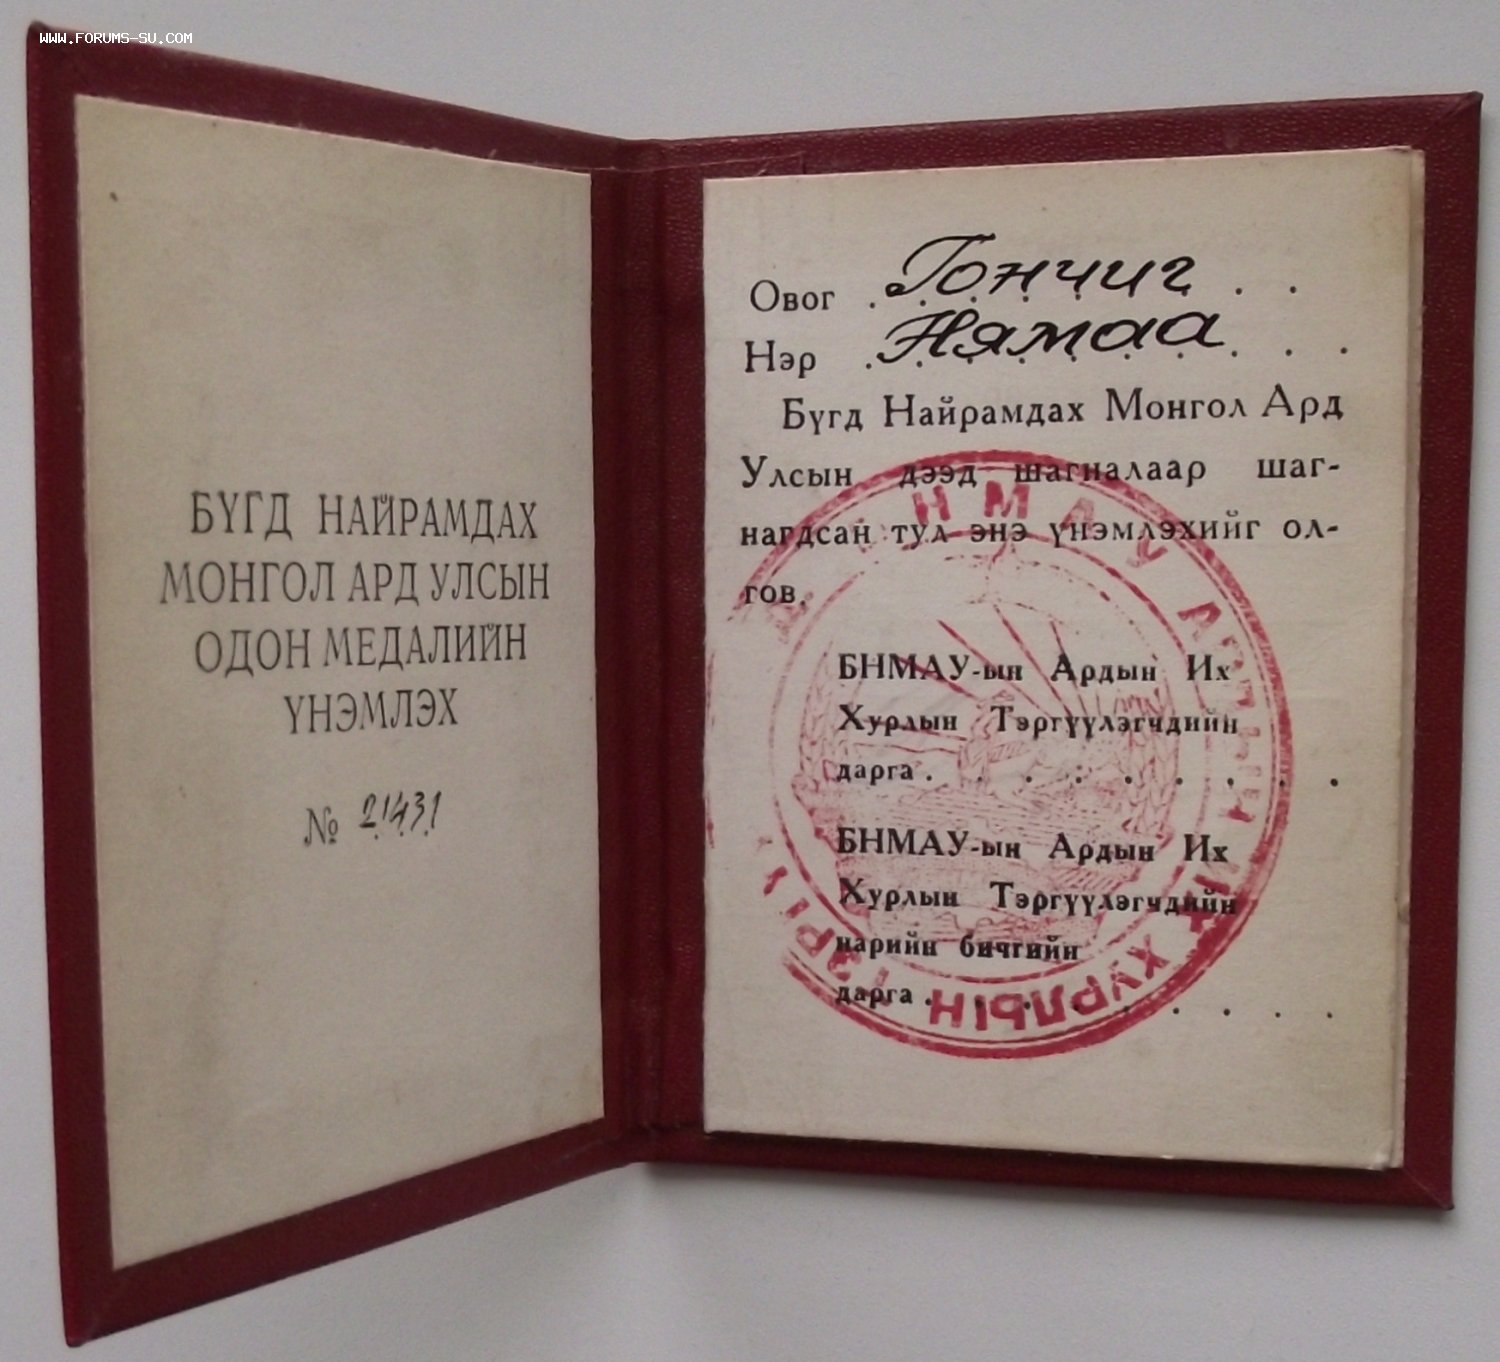 WWW.FORUMS-SU.COM
БҮГД НАЙРАМДАХ
МОНГОЛ АРД УЛСЫН
ОДОН МЕДАЛИЙН
ҮНЭМЛЭХ
№ 21431
Овог . Гончиг . .
Нэр . Нямаа . . .
Бүгд Найрамдах Монгол Ард
Улсын дээд шагналаар шаг-
нагдсан тул энэ үнэмлэхийг ол-
гов.
БНМАУ-ын Ардын Их
Хурлын Тэргүүлэгчдийн
дарга . . . . . . . . .
БНМАУ-ын Ардын Их
Хурлын Тэргүүлэгчдийн
нарийн бичгийн
дарга . . . . . . . . .
БНМАУ АРДЫН ИХ ХУРЛЫН